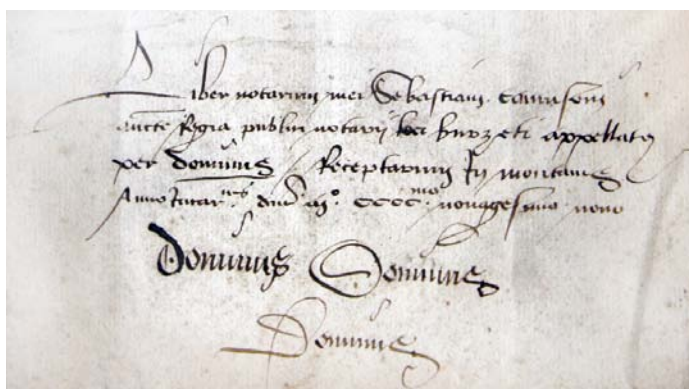 Liber notarum mei Sebastiani
aucte Regia publici notarii loci burzeti appellat
per dominus Receptarum In montanis
Anno Incar nis dni mo cccc mo nonagesimo nono
Dominus Dominus
Dominus